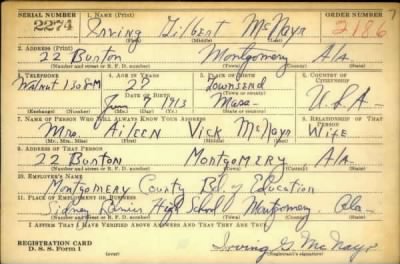 SERIAL NUMBER 1. NAME (Print) ORDER NUMBER
2274 Irving Gilbert McNayr 2186
(First) (Middle) (Last)
2. ADDRESS (Print)
22 Burton Montgomery Ala
(Number and street or R. F. D. number) (Town) (County) (State)
3. TELEPHONE 4. AGE IN YEARS 5. PLACE OF BIRTH 6. COUNTRY OF CITIZENSHIP
Walnut 1308-M 27 Townsend
DATE OF BIRTH (Town or county)
June 9, 1913 Mass- U.S.A.
(Exchange) (Number) (Mo.) (Day) (Yr.) (State or country)
7. NAME OF PERSON WHO WILL ALWAYS KNOW YOUR ADDRESS 8. RELATIONSHIP OF THAT PERSON
Mrs. Aileen Vick McNayr Wife
(Mr., Mrs., Miss) (First) (Middle) (Last)
9. ADDRESS OF THAT PERSON
22 Burton Montgomery Ala-
(Number and street or R. F. D. number) (Town) (County) (State)
10. EMPLOYER'S NAME
Montgomery County Bd. of Education
11. PLACE OF EMPLOYMENT OR BUSINESS
Sidney Lanier High School Montgomery, Ala-
(Number and street or R. F. D. number) (Town) (County) (State)
I AFFIRM THAT I HAVE VERIFIED ABOVE ANSWERS AND THAT THEY ARE TRUE.
REGISTRATION CARD
D. S. S. Form 1 Irving G. McNayr
(Registrant's signature)